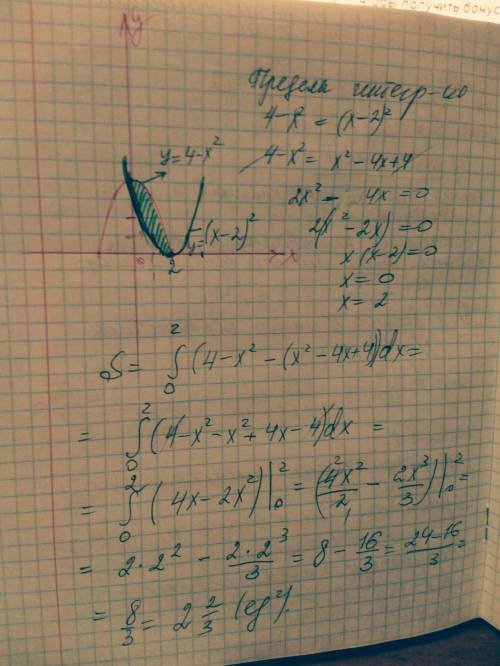 чтобы получить бонус
y
Пределы интегр-ио
4-x² = (x-2)²
y=4-x²
4-x² = x²-4x+4
2x² - 4x = 0
y=(x-2)²
2(x²-2x)=0
x
x(x-2)=0
0
2
x=0
x=2
S = ∫₀² (4-x²-(x²-4x+4))dx=
= ∫₀² (4-x²-x²+4x-4)dx =
= ∫₀² (4x-2x²)|₀² = (4x²/2 - 2x³/3)|₀² =
= 2·2² - 2·2³/3 = 8 - 16/3 = 24-16/3 =
= 8/3 = 2 2/3 (ед²).